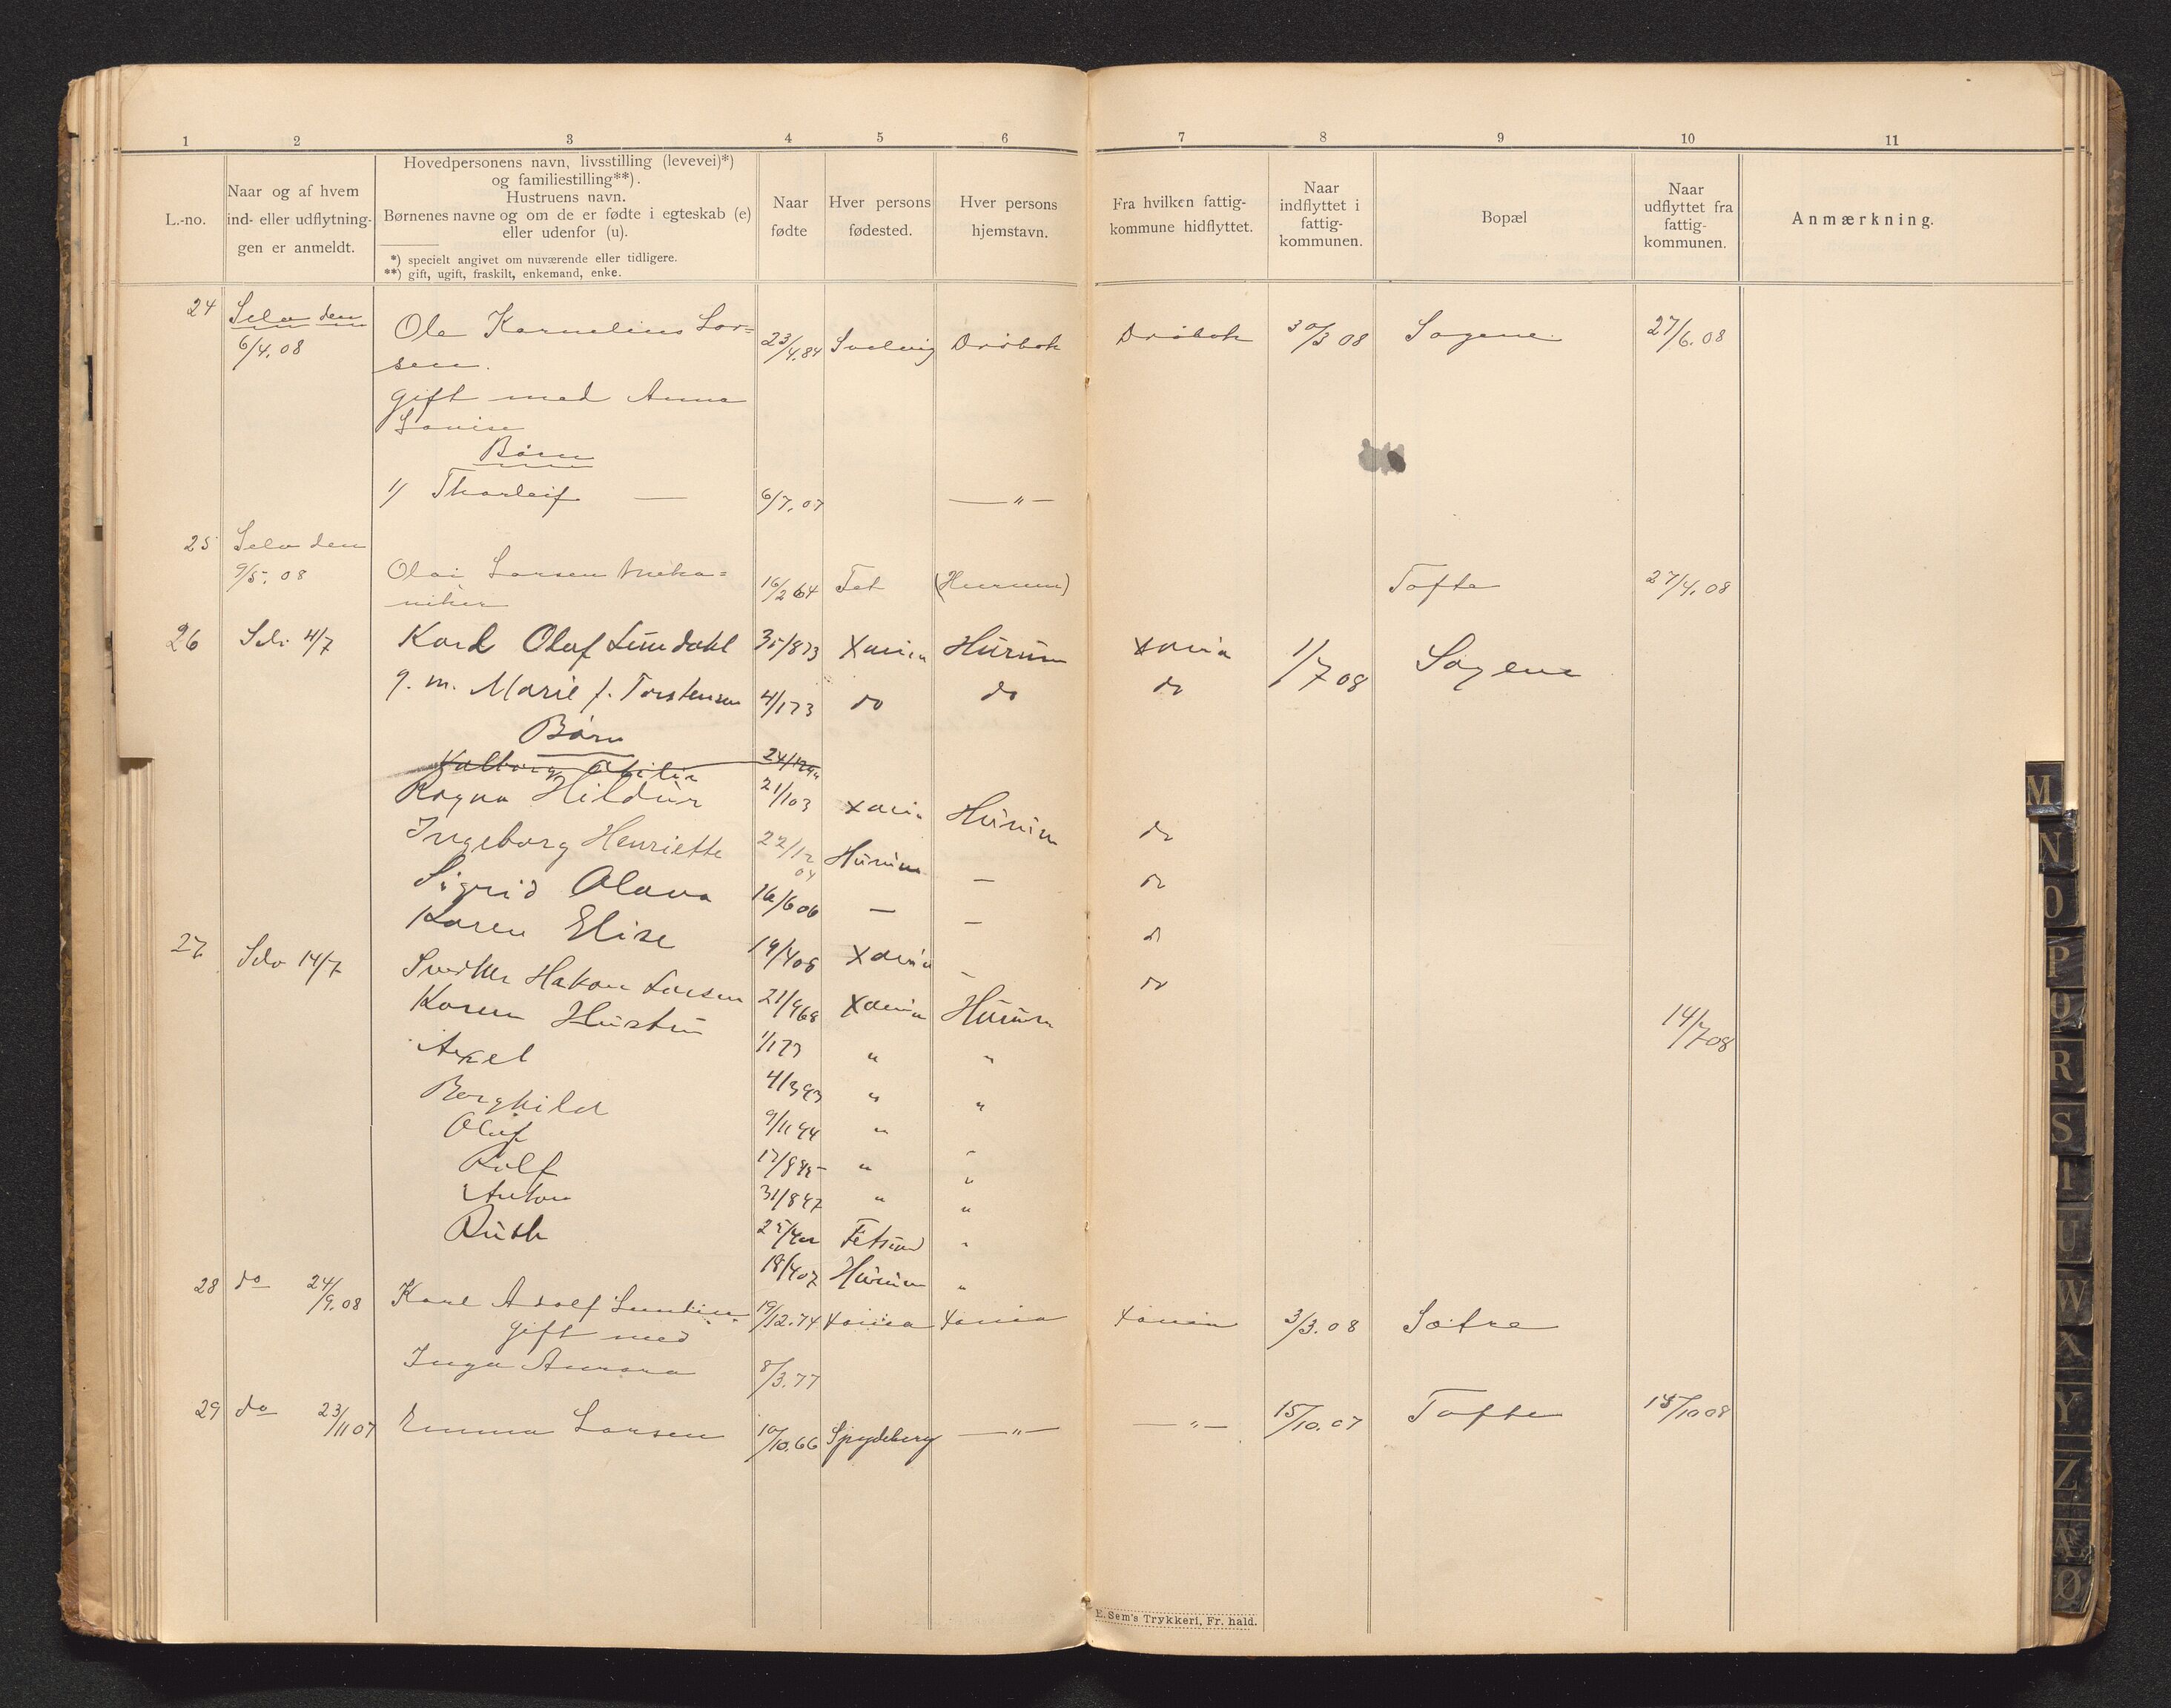 1 2 3 4 5 6 7 8 9 10 11
L.-no.
Naar og af hvem
ind- eller udflytnin-
gen er anmeldt.
Hovedpersonens navn, livsstilling (levevei)*)
og familiestilling**).
Hustruens navn.
Børnenes navne og om de er fødte i egteskab (e)
eller udenfor (u).
*) specielt angivet om nuværende eller tidligere.
**) gift, ugift, fraskilt, enkemand, enke.
Naar
fødte
Hver persons
fødested.
Hver persons
hjemstavn.
Fra hvilken fattig-
kommune hidflyttet.
Naar
indflyttet i
fattig-
kommunen.
Bopæl
Naar
udflyttet fra
fattig-
kommunen.
Anmærkning.
24 Selv den
6/4. 08 Ole Kornelius Lar= 23/4.84 Svelvig Drøbak Drøbak 30/3 08 Sagene 27/6. 08
sen.
gift med Anna
Lovise
Børn
1/ Thorleif — 6/7. 07 — " —
25 Selv den
9/5. 08 Olai Larsen Meka= 16/2 64 Fet (Hurum) Tofte 27/4. 08
niker
26 Selv 4/7 Karl Olaf Lundahl Xania Hurum Xania 1/7 08 Sagene
g. m. Marie f. Torstensen 4/1 73 do do do
Børn
Ragna Hildur 21/1 03 Xania Hurum do
Ingeborg Henriette 22/12 04 Hurum — do
Sigrid Olava 16/6 06 — — do
Karen Elise 19/4 08 Xania — do
27 Selv 14/7 Hakon Larsen 21/9 68 Xania Hurum 14/7 08
Karen Hustru 1/1 73 " "
Axel 4/3 93 " "
Borghild 9/11 94 " "
Oluf 17/8 95 " "
Rolf 31/8 97 " "
Anton Fetsund "
Ruth 18/4 07 Hurum "
28 do 24/9. 08 Karl Adolf 19/12. 74 Xania Xania Xania 3/3. 08 Sætre
gift med
Inga Aurora 8/3. 77
29 do 23/11 07 Emma Larsen 10/10. 66 Spydeberg — " — — " — 15/10. 07 Tofte 15/10 08
E. Sem's Trykkeri, Fr. hald.
M
N
O
P
Q
R
S
T
U
W
X
Y
Z
Æ
Ø